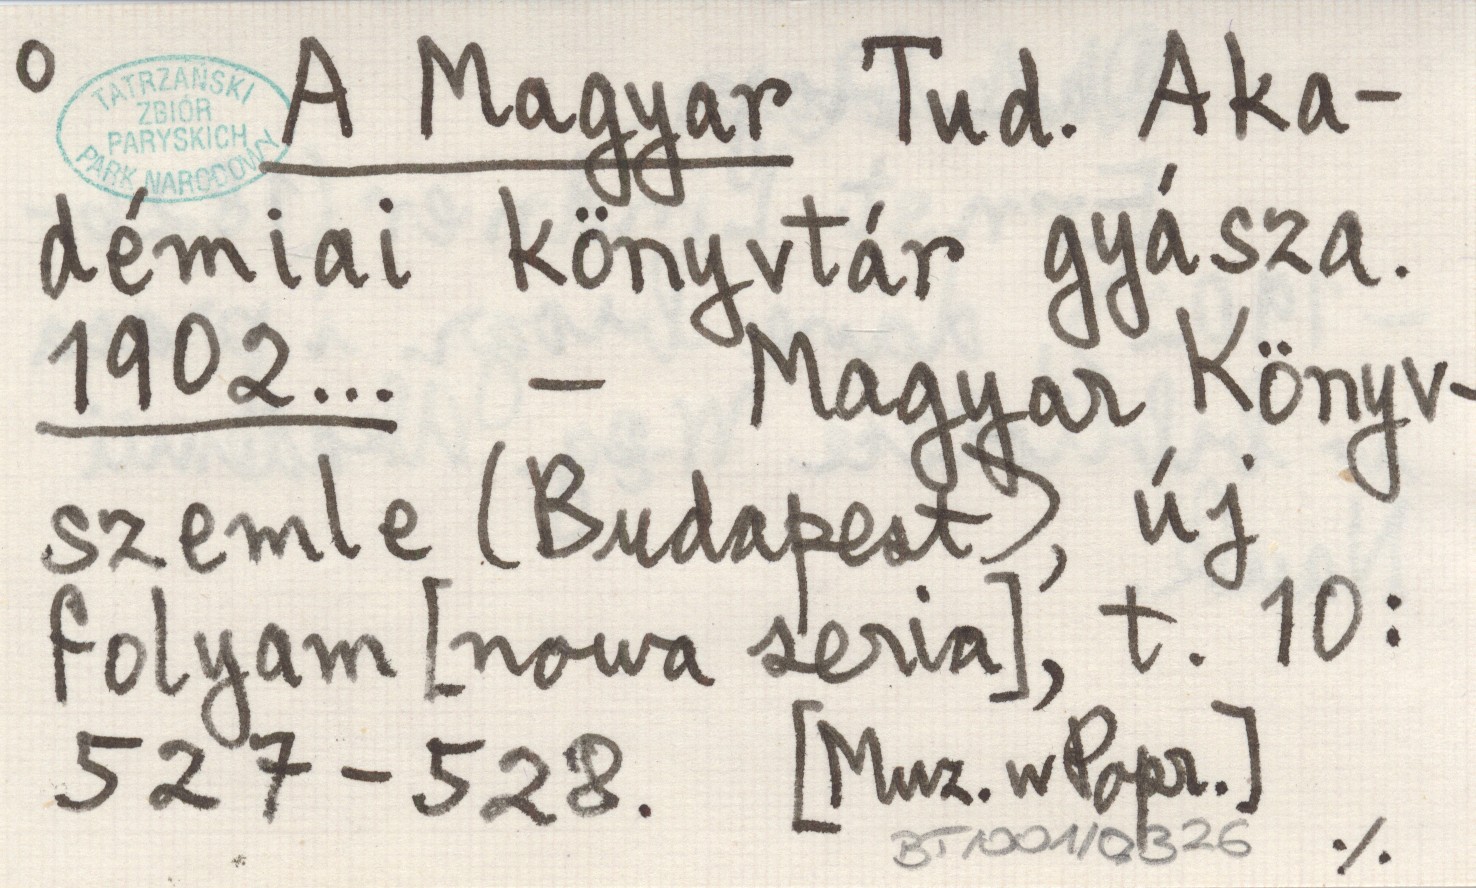 o
TATRZAŃSKI
ZBIÓR
PARYSKICH
PARK NARODOWY
A Magyar Tud. Aka-
démiai könyvtár gyásza.
1902... – Magyar Könyv-
szemle (Budapest), új
folyam [nowa seria], t. 10:
527-528. [Muz. w Popr.]
BT/1001/0326
./.